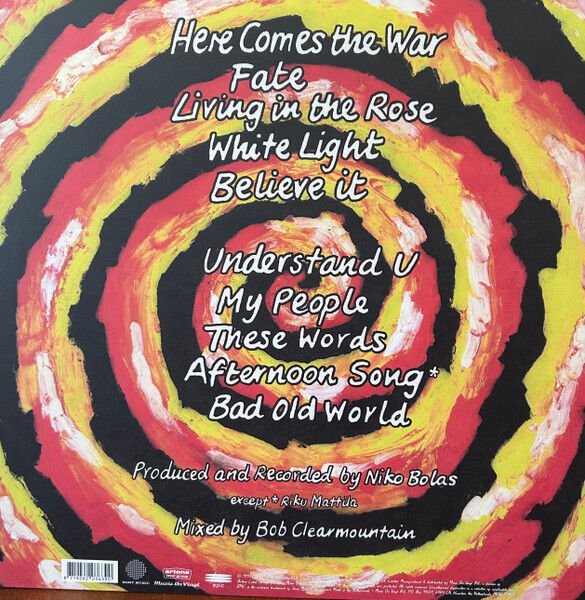 Here Comes the War
Fate
Living in the Rose
White Light
Believe it
Understand U
My People
These Words
Afternoon Song*
Bad Old World
Produced and Recorded by Niko Bolas
except * Riku Mattila
Mixed by Bob Clearmountain
artone
Music On Vinyl
epic